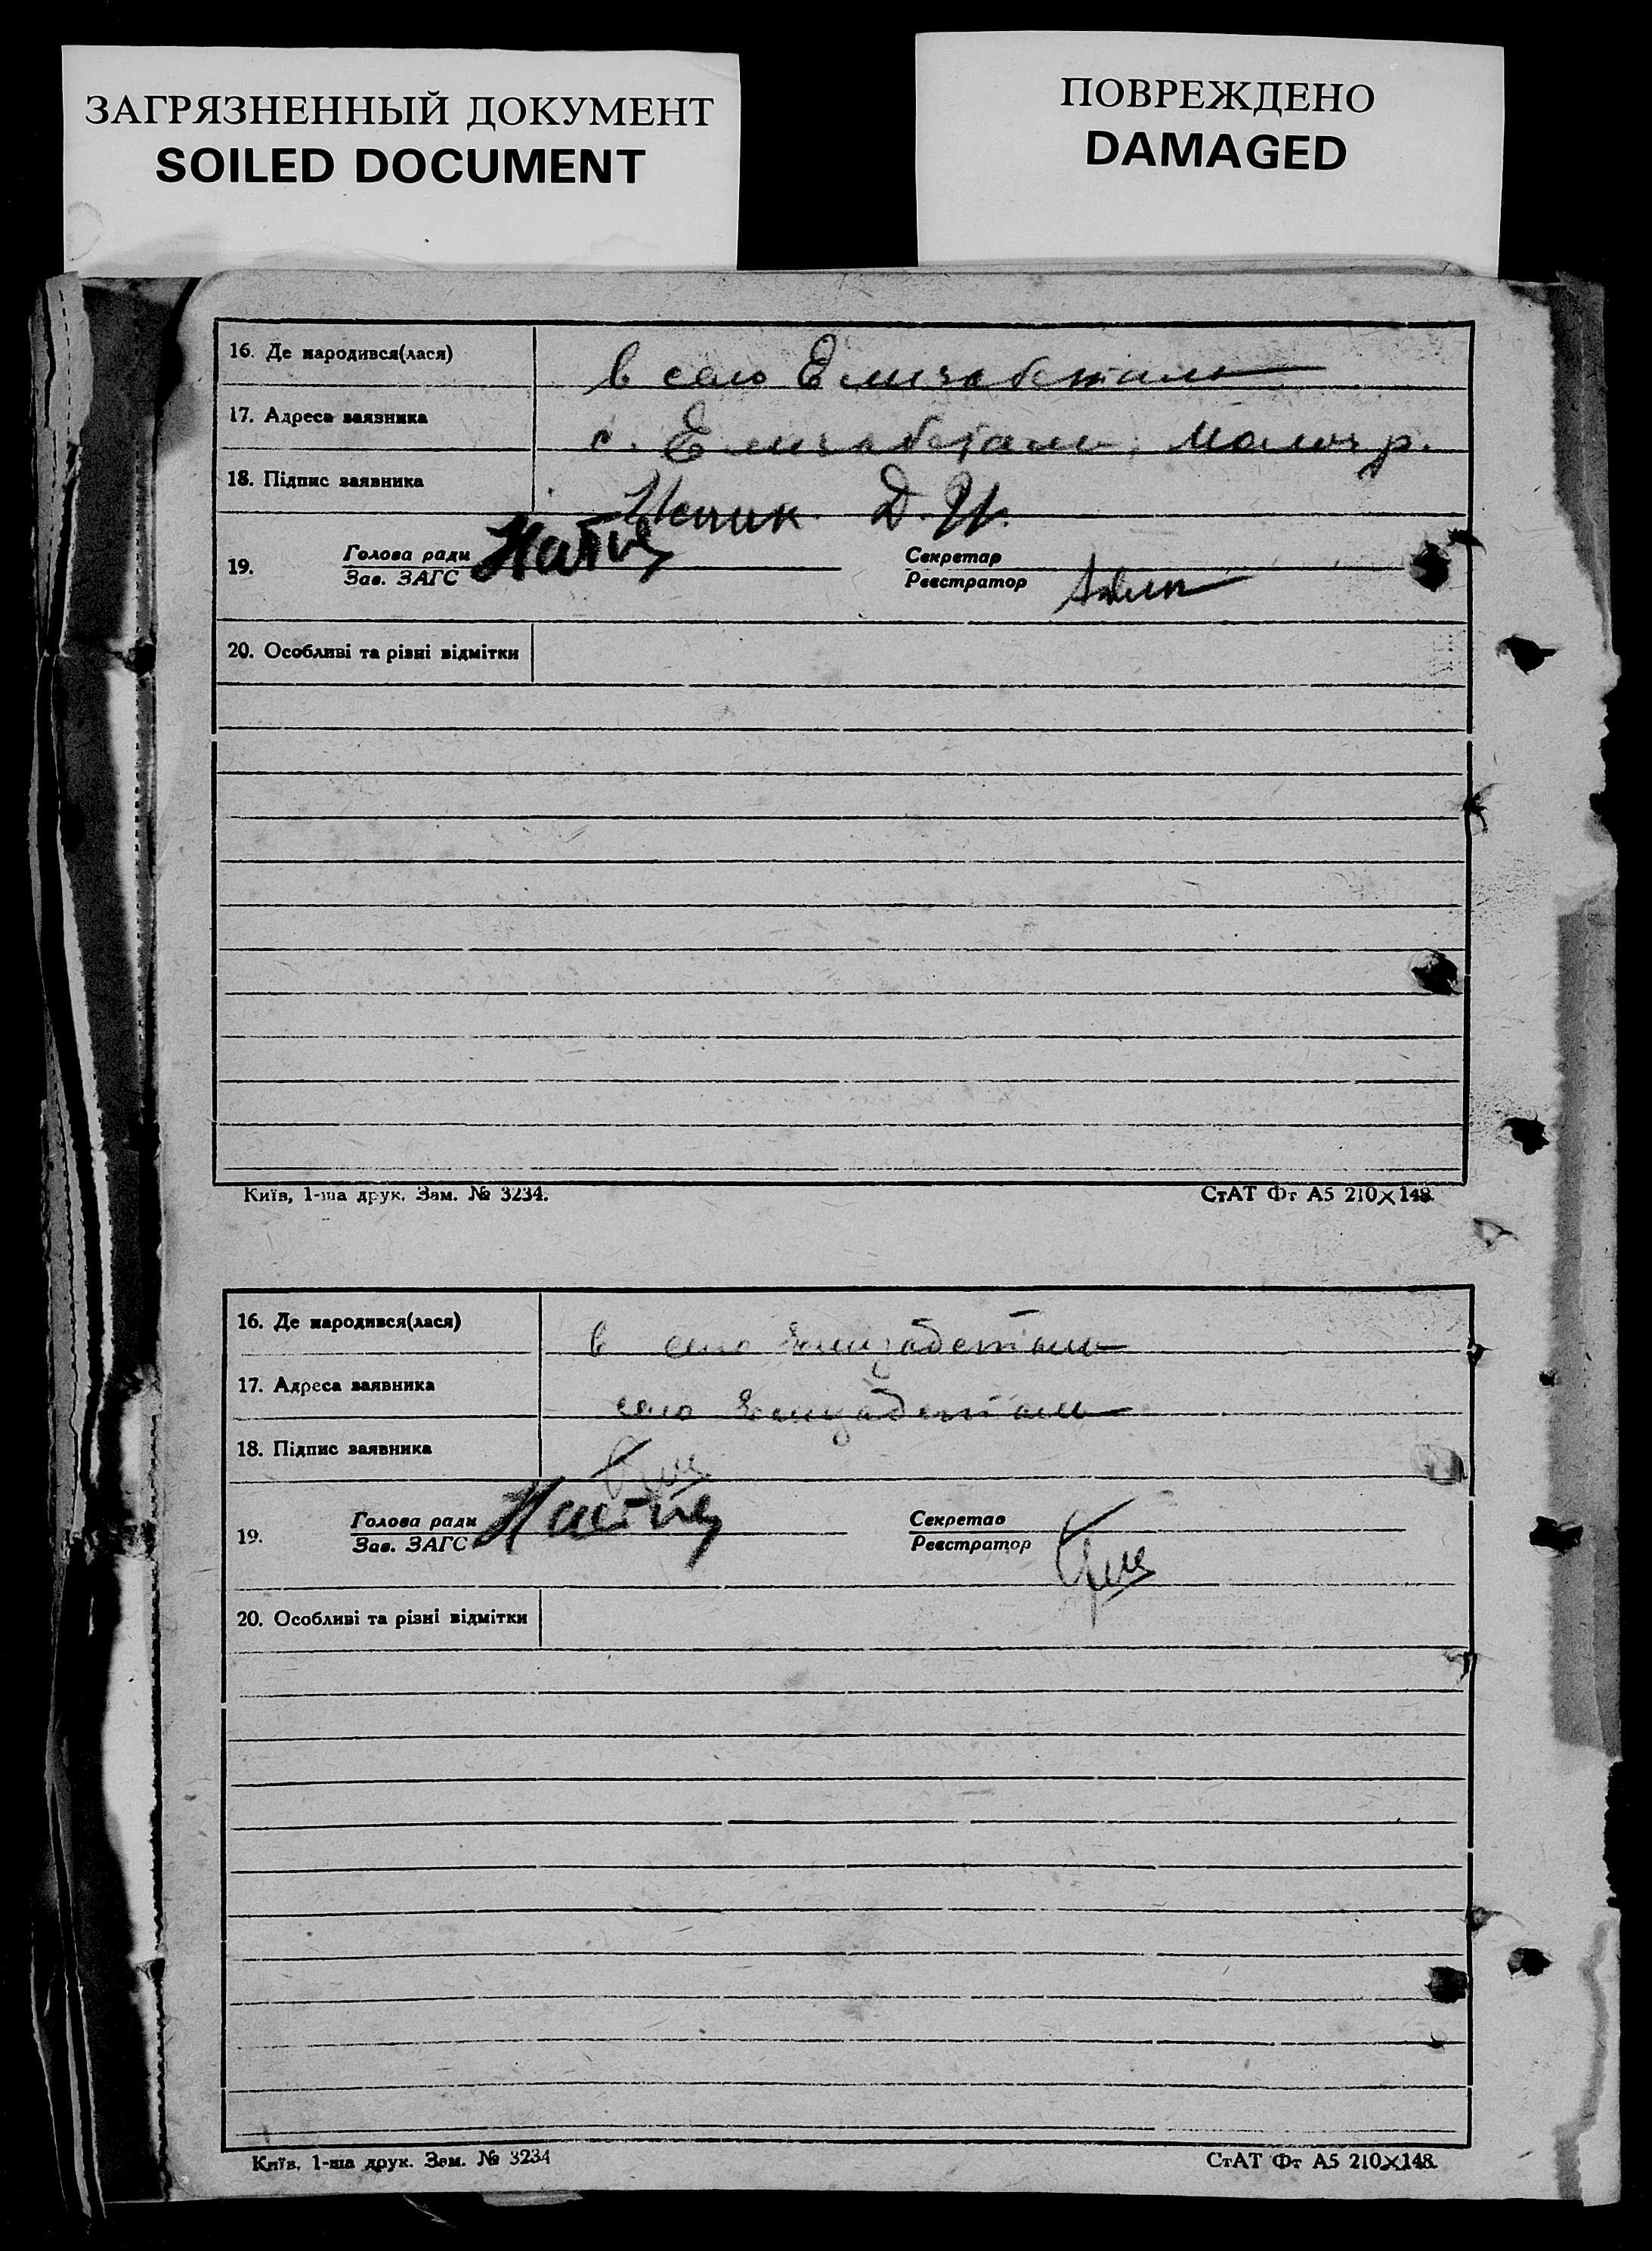 ЗАГРЯЗНЕННЫЙ ДОКУМЕНТ
SOILED DOCUMENT
ПОВРЕЖДЕНО
DAMAGED
16. Де народився(лася) в село Елизабеталь
17. Адреса заявника с. Елизабеталь, Молоч р.
18. Підпис заявника Д. И.
19. Голова ради Секретар
Зав. ЗАГС Реєстратор
20. Особливі та різні відмітки
Київ, 1-ша друк. Зам. № 3234. СтАТ Фт А5 210×148.
16. Де народився(лася) в село Елизабеталь
17. Адреса заявника село Елизабеталь
18. Підпис заявника
19. Голова ради Секретар
Зав. ЗАГС Реєстратор
20. Особливі та різні відмітки
Київ, 1-ша друк. Зам. № 3234 СтАТ Фт А5 210×148.